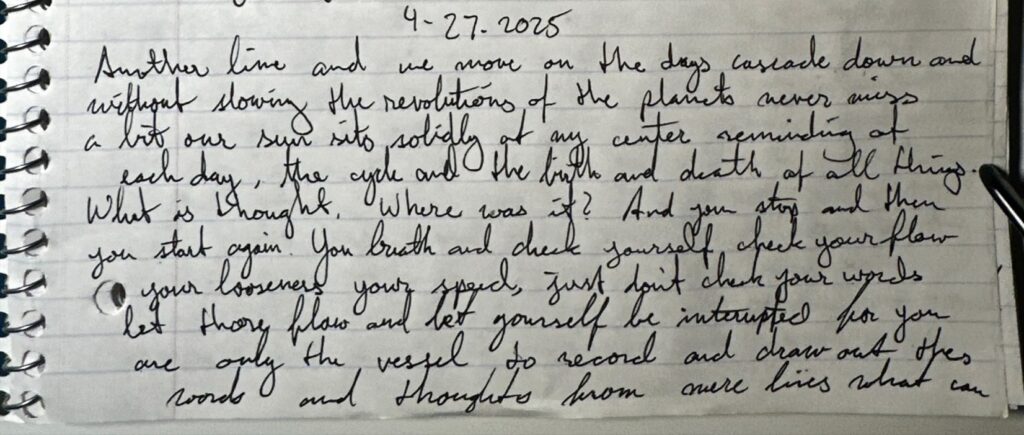 4-27-2025
Another line and we move on the days cascade down and
without slowing the revolutions of the planets never miss
a bit our sun sits solidly at my center reminding of
each day, the cycle and the birth and death of all things.
What is thought. Where was it? And you stop and then
you start again. You breath and check yourself, check your flow
your looseness your speed, just don't check your words
let those flow and let yourself be interrupted for you
are only the vessel to record and draw out thes
words and thoughts from mere lines what can